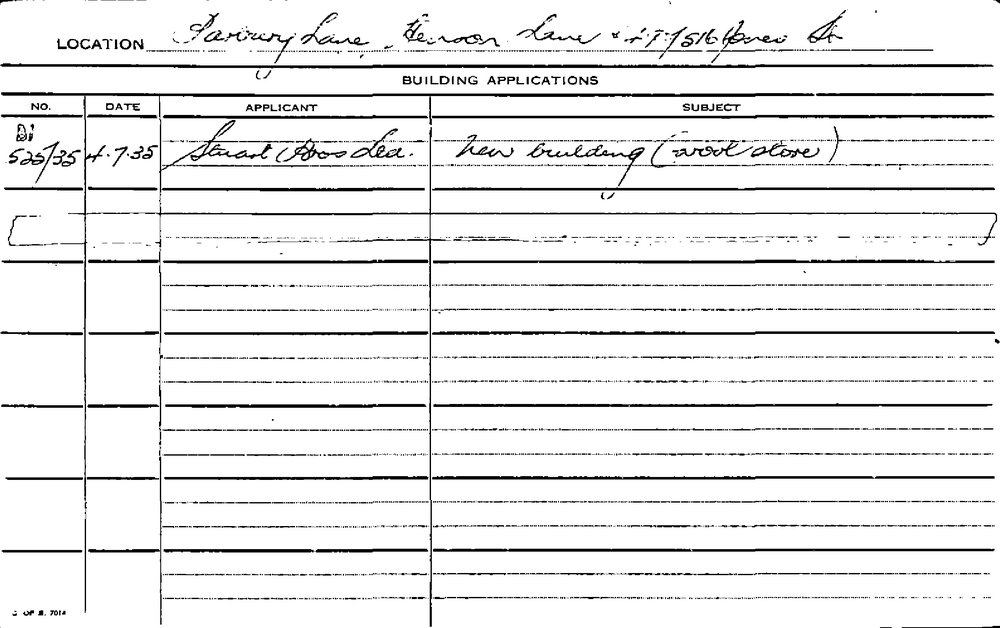 LOCATION Parbury Lane, Henson Lane & 477/516 Jones St
BUILDING APPLICATIONS
NO. DATE APPLICANT SUBJECT
525/35 4.7.35 Stuart Bros Ltd. New building (wool store)